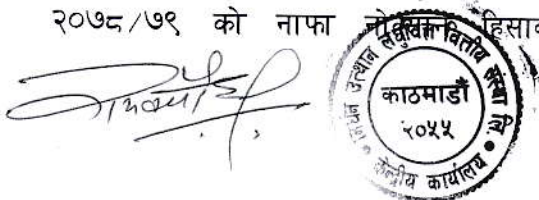 २०७८/७९ को नाफा नोक्सान हिसाव
निर्धन उत्थान लघुवित्त वित्तीय संस्था लि.
काठमाडौं
२०५५
केन्द्रीय कार्यालय